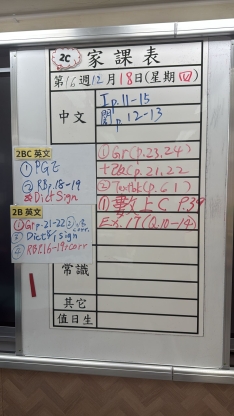 2C 家課表
第16週12月18日(星期四)
中文
工p.11-15
閱p.12-13
2BC 英文
① PGE
② RBp.18-19
③ Dict Sign
① Gr(p.23,24)
p.21,22
② Textbk(p.61)
2B 英文
① Gr p.21-22
② Dict sign
③ RBp.16-19 corr
① 數上C P.39
Ex.17(Q.10-14)
常識
其它
值日生